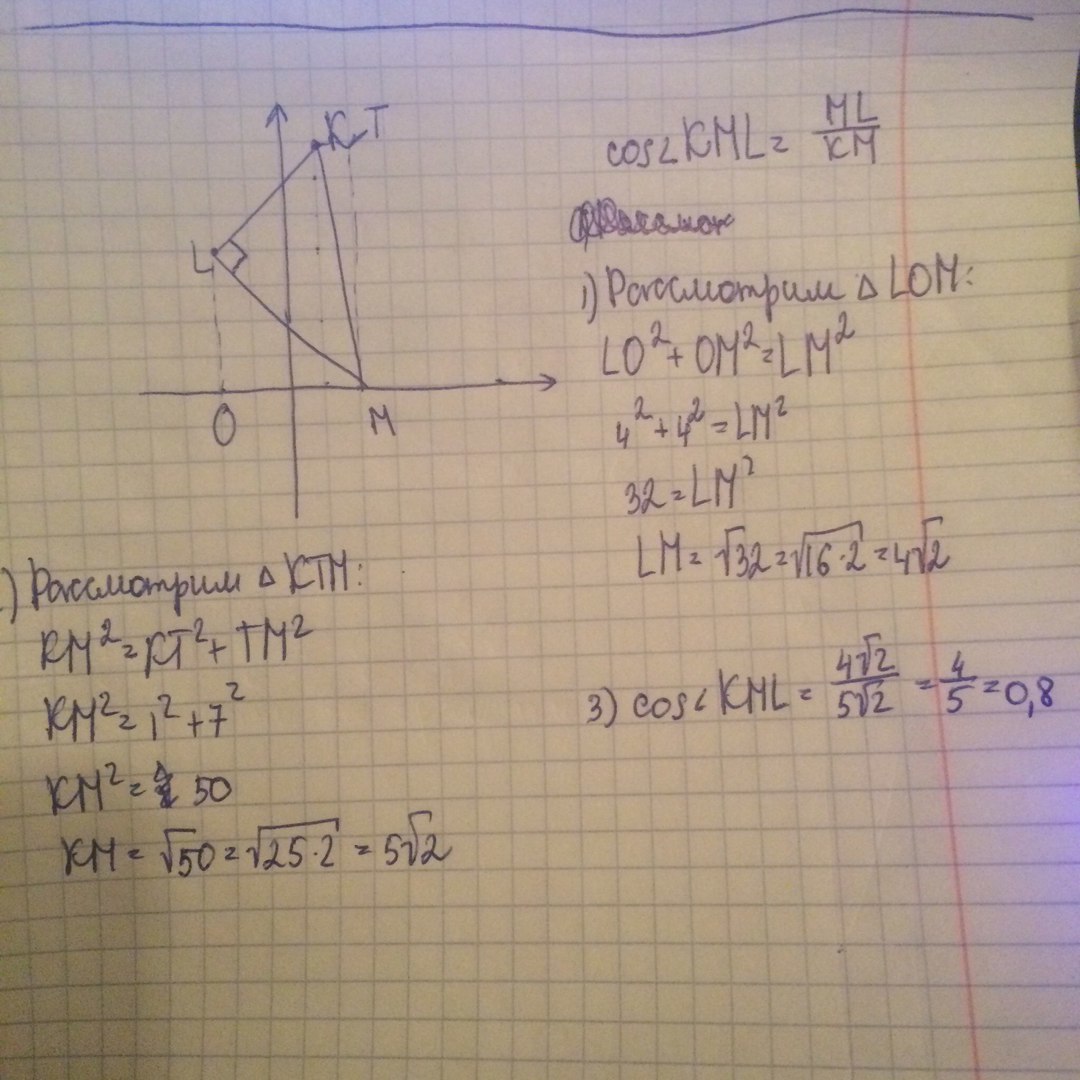 K T
L
O
M
cos∠KML = ML/KM
1) Рассмотрим △ LOM:
LO² + OM² = LM²
4² + 4² = LM²
32 = LM²
LM = √32 = √16·2 = 4√2
) Рассмотрим △ KTM:
KM² = KT² + TM²
KM² = 1² + 7²
KM² = 50
KM = √50 = √25·2 = 5√2
3) cos∠ KML = 4√2/5√2 = 4/5 = 0,8